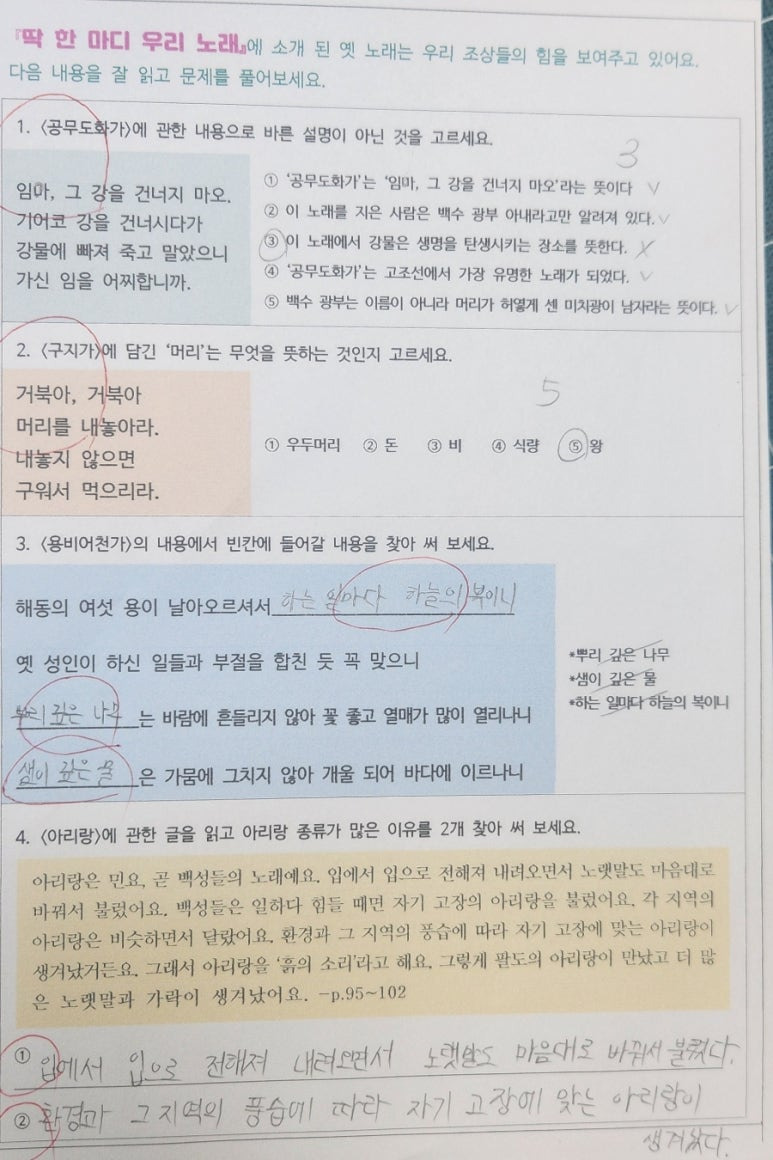 『딱 한 마디 우리 노래』에 소개 된 옛 노래는 우리 조상들의 힘을 보여주고 있어요.
다음 내용을 잘 읽고 문제를 풀어보세요.
1. 〈공무도화가〉에 관한 내용으로 바른 설명이 아닌 것을 고르세요.
3
임마, 그 강을 건너지 마오.
기어코 강을 건너시다가
강물에 빠져 죽고 말았으니
가신 임을 어찌합니까.
① '공무도화가'는 '임마, 그 강을 건너지 마오'라는 뜻이다
② 이 노래를 지은 사람은 백수 광부 아내라고만 알려져 있다.
③ 이 노래에서 강물은 생명을 탄생시키는 장소를 뜻한다.
④ '공무도화가'는 고조선에서 가장 유명한 노래가 되었다.
⑤ 백수 광부는 이름이 아니라 머리가 허옇게 센 미치광이 남자라는 뜻이다.
2. 〈구지가〉에 담긴 '머리'는 무엇을 뜻하는 것인지 고르세요.
5
거북아, 거북아
머리를 내놓아라.
내놓지 않으면
구워서 먹으리라.
① 우두머리 ② 돈 ③ 비 ④ 식량 ⑤ 왕
3. 〈용비어천가〉의 내용에서 빈칸에 들어갈 내용을 찾아 써 보세요.
해동의 여섯 용이 날아오르셔서 하는 일마다 하늘의 복이니
옛 성인이 하신 일들과 부절을 합친 듯 꼭 맞으니
뿌리 깊은 나무 는 바람에 흔들리지 않아 꽃 좋고 열매가 많이 열리나니
샘이 깊은 물 은 가뭄에 그치지 않아 개울 되어 바다에 이르나니
*뿌리 깊은 나무
*샘이 깊은 물
*하는 일마다 하늘의 복이니
4. 〈아리랑〉에 관한 글을 읽고 아리랑 종류가 많은 이유를 2개 찾아 써 보세요.
아리랑은 민요, 곧 백성들의 노래예요. 입에서 입으로 전해져 내려오면서 노랫말도 마음대로
바꿔서 불렀어요. 백성들은 일하다 힘들 때면 자기 고장의 아리랑을 불렀어요. 각 지역의
아리랑은 비슷하면서 달랐어요. 환경과 그 지역의 풍습에 따라 자기 고장에 맞는 아리랑이
생겨났거든요. 그래서 아리랑을 '흙의 소리'라고 해요. 그렇게 팔도의 아리랑이 만났고 더 많
은 노랫말과 가락이 생겨났어요. -p.95~102
① 입에서 입으로 전해져 내려오면서 노랫말도 마음대로 바꿔서 불렀다.
② 환경과 그 지역의 풍습에 따라 자기 고장에 맞는 아리랑이
생겨났다.